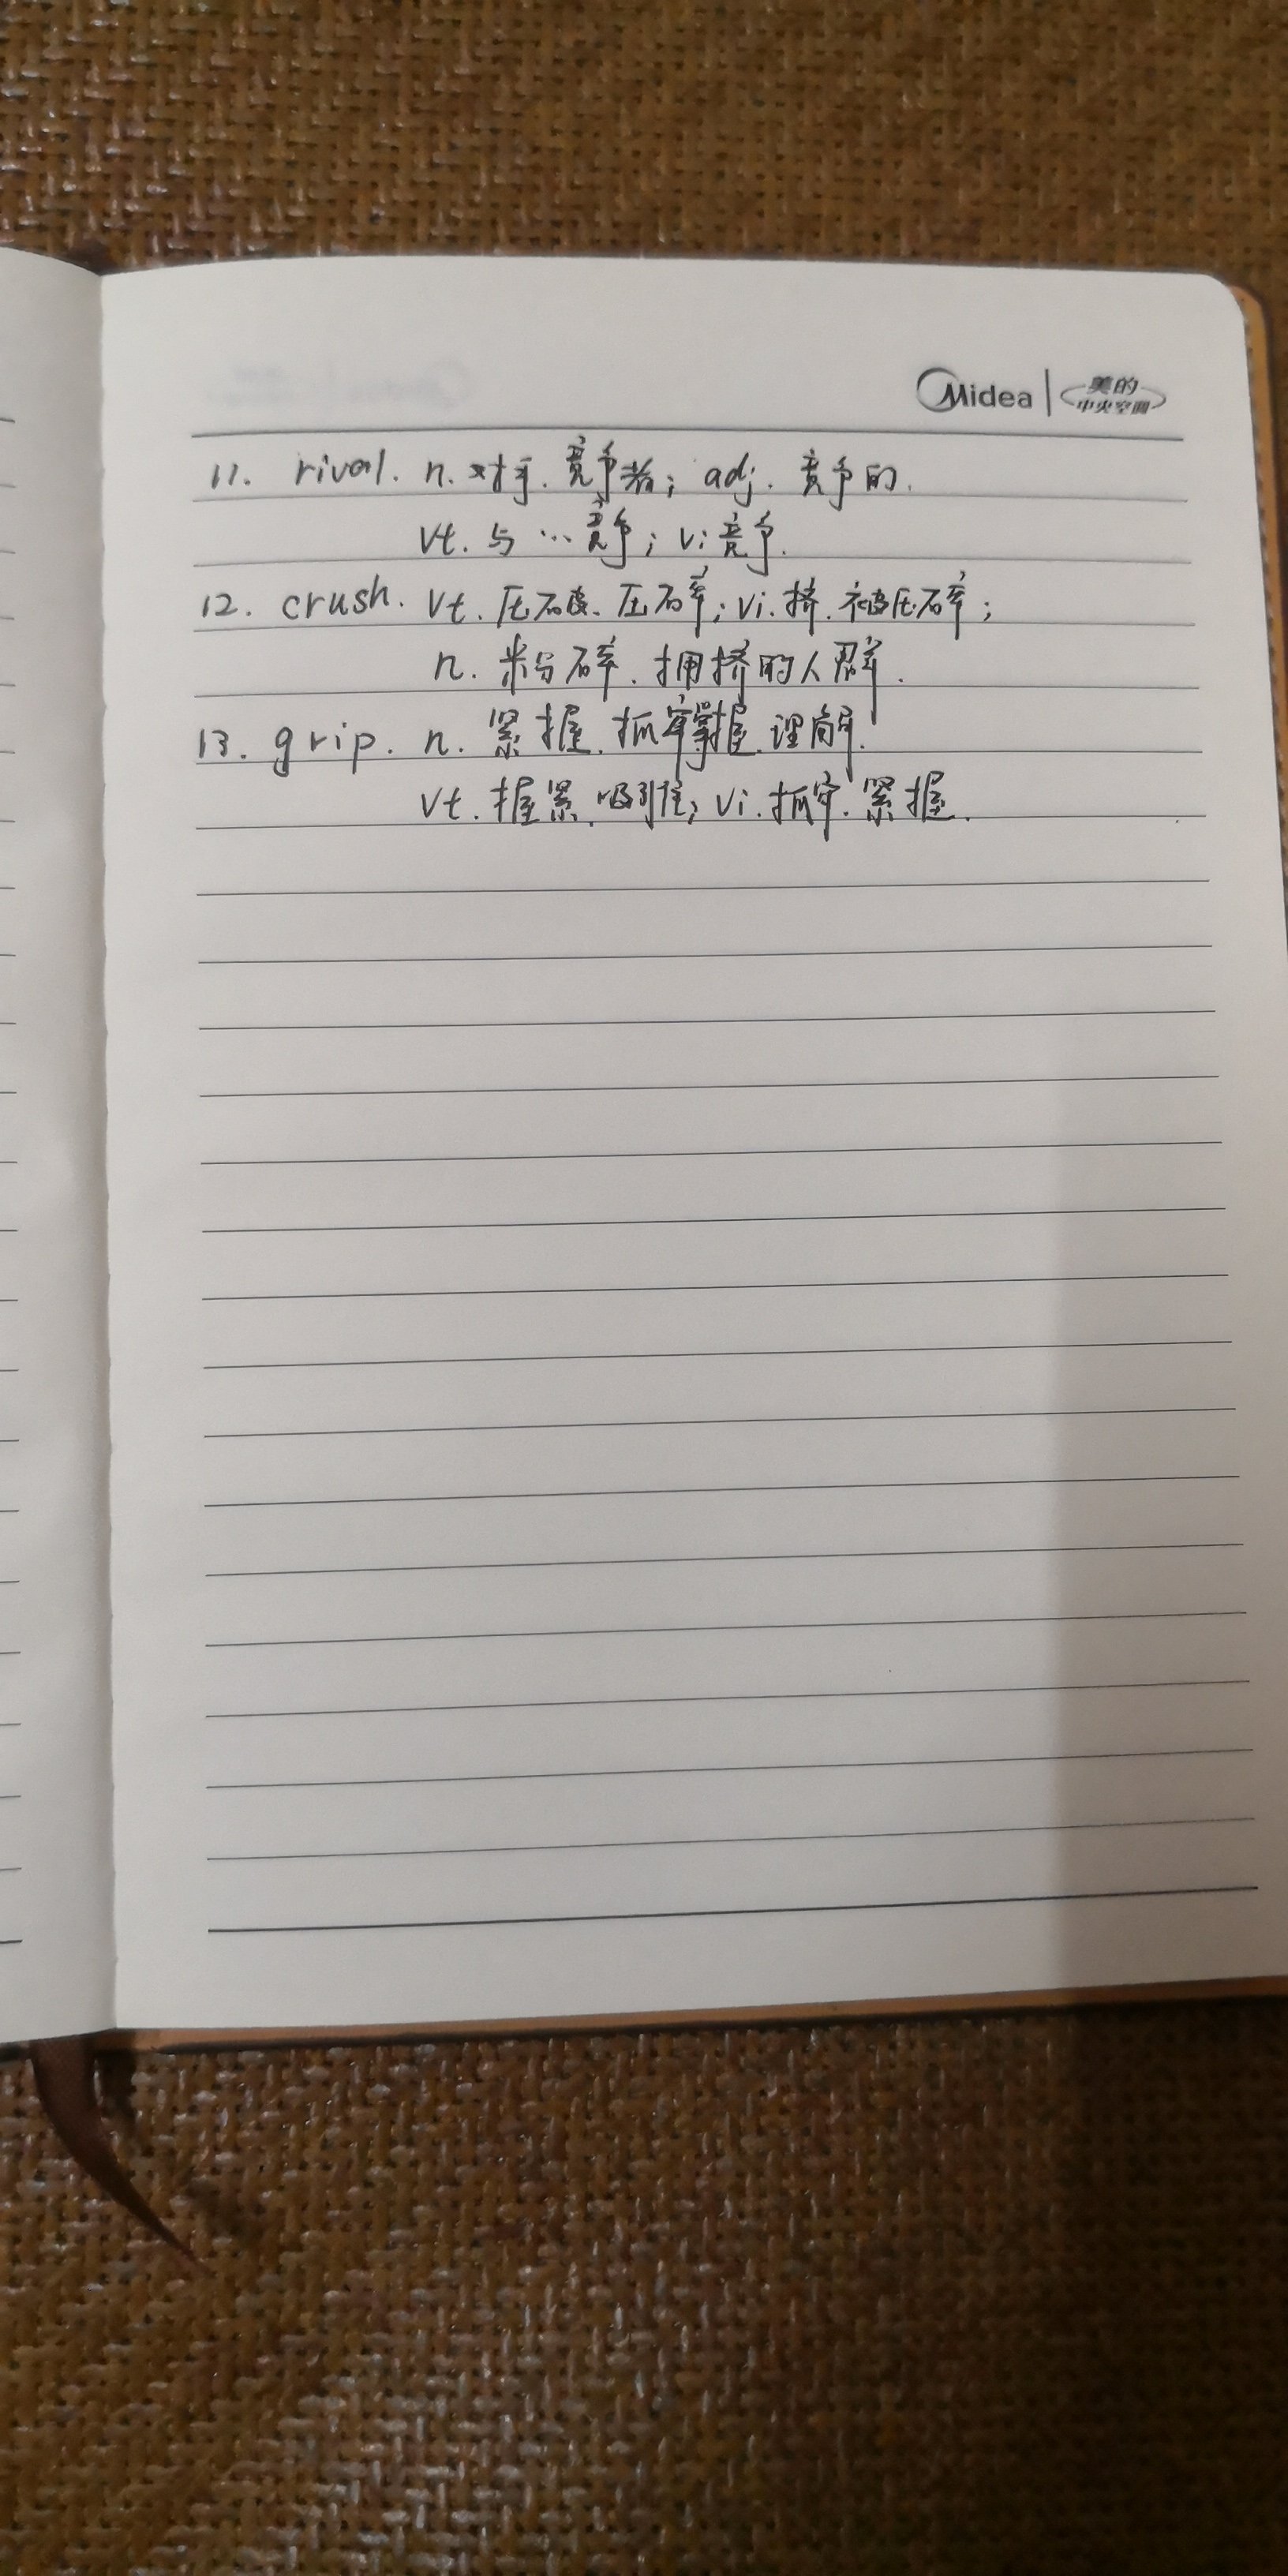 Midea 美的 中央空调
11. rival. n. 对手. 竞争者; adj. 竞争的.
vt. 与 ... 竞争; vi 竞争.
12. crush. vt. 压破. 压碎; vi. 挤. 被压碎;
n. 粉碎. 拥挤的人群.
13. grip. n. 紧握. 抓牢掌握. 理解.
vt. 握紧. 吸引住; vi. 抓牢. 紧握.